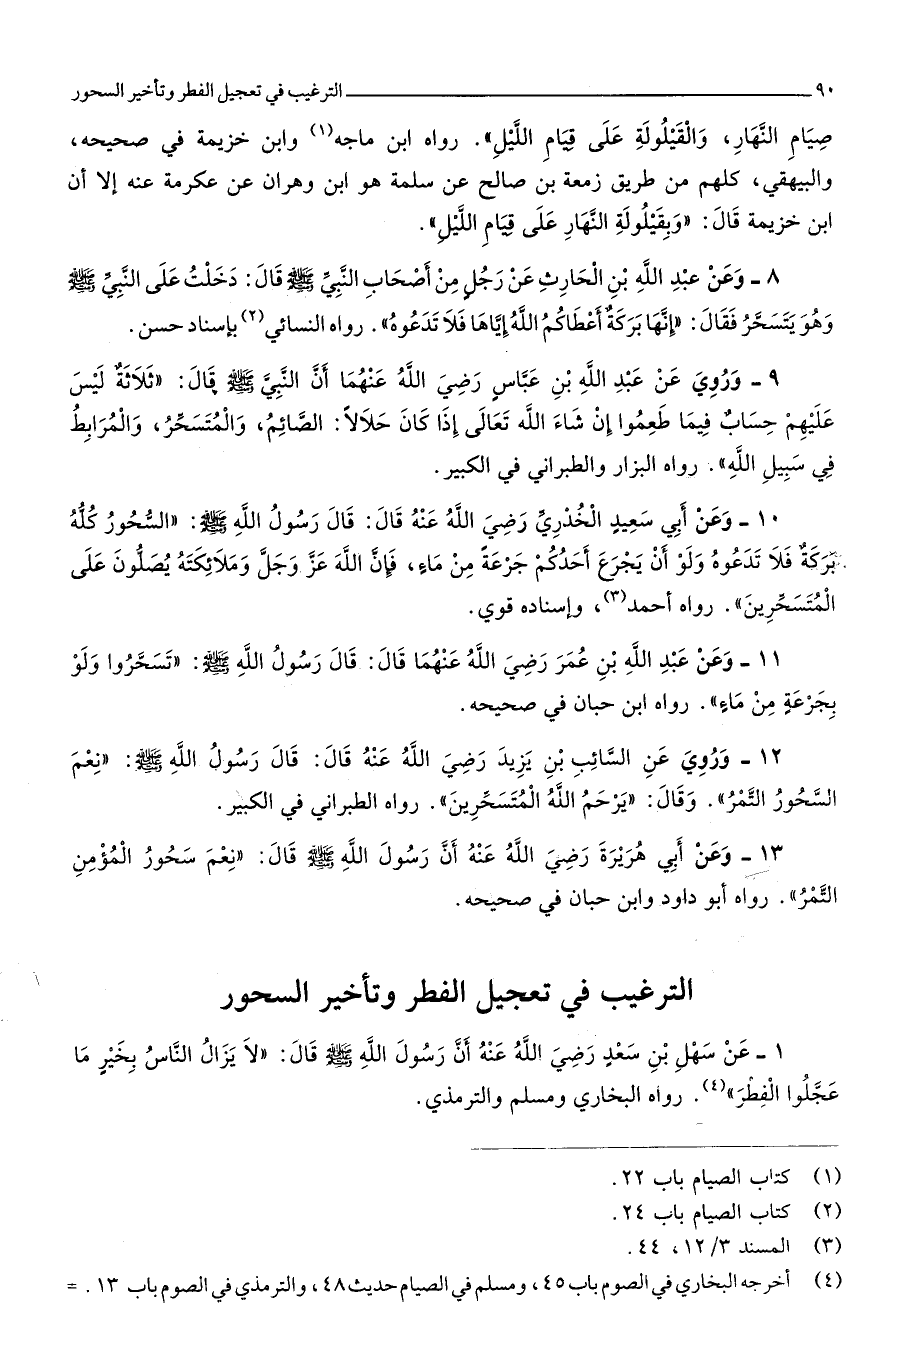 ٩٠ الترغيب في تعجيل الفطر وتأخير السحور
صِيَامِ النَّهَارِ، وَالْقَيْلُولَةِ عَلَى قِيَامِ اللَّيْلِ». رواه ابن ماجه(١) وابن خزيمة في صحيحه،
والبيهقي، كلهم من طريق زمعة بن صالح عن سلمة هو ابن وهران عن عكرمة عنه إلا أن
ابن خزيمة قَالَ: «وَبِقَيْلُولَةِ النَّهَارِ عَلَى قِيَامِ اللَّيْلِ».
٨ - وَعَنْ عبْدِ اللَّهِ بْنِ الْحَارِثِ عَنْ رَجُلٍ مِنْ أَصْحَابِ النَّبِيِّ ﷺ قَالَ: دَخَلْتُ عَلَى النَّبِيِّ ﷺ
وَهُوَ يَتَسَحَّرُ فَقَالَ: «إِنَّهَا بَرَكَةٌ أَعْطَاكُمُ اللَّهُ إِيَّاهَا فَلاَ تَدَعُوهُ». رواه النسائي(٢) بإسناد حسن.
٩ - وَرُوِيَ عَنْ عَبْدِ اللَّهِ بْنِ عَبَّاسٍ رَضِيَ اللَّهُ عَنْهُمَا أَنَّ النَّبِيَّ ﷺ قَالَ: «ثَلاَثَةٌ لَيْسَ
عَلَيْهِمْ حِسَابٌ فِيمَا طَعِمُوا إِنْ شَاءَ الله تَعَالَى إِذَا كَانَ حَلاَلاً: الصَّائِمُ، وَالْمُتَسَحِّرُ، وَالْمُرَابِطُ
فِي سَبِيلِ اللَّهِ». رواه البزار والطبراني في الكبير.
١٠ - وَعَنْ أَبِي سَعِيدٍ الْخُدْرِيِّ رَضِيَ اللَّهُ عَنْهُ قَالَ: قَالَ رَسُولُ اللَّهِ ﷺ: «السُّحُورُ كُلُّهُ
بَرَكَةٌ فَلاَ تَدَعُوهُ وَلَوْ أَنْ يَجْرَعَ أَحَدُكُمْ جَرْعَةً مِنْ مَاءٍ، فَإِنَّ اللَّهَ عَزَّ وَجَلَّ وَمَلاَئِكَتَهُ يُصَلُّونَ عَلَى
الْمُتَسَحِّرِينَ». رواه أحمد(٣)، وإسناده قوي.
١١ - وَعَنْ عَبْدِ اللَّهِ بْنِ عُمَرَ رَضِيَ اللَّهُ عَنْهُمَا قَالَ: قَالَ رَسُولُ اللَّهِ ﷺ: «تَسَحَّرُوا وَلَوْ
بِجَرْعَةٍ مِنْ مَاءٍ». رواه ابن حبان في صحيحه.
١٢ - وَرُوِيَ عَنِ السَّائِبِ بْنِ يَزِيدَ رَضِيَ اللَّهُ عَنْهُ قَالَ: قَالَ رَسُولُ اللَّهِ ﷺ: «نِعْمَ
السَّحُورُ التَّمْرُ». وَقَالَ: «يَرْحَمُ اللَّهُ الْمُتَسَحِّرِينَ». رواه الطبراني في الكبير.
١٣ - وَعَنْ أَبِي هُرَيْرَةَ رَضِيَ اللَّهُ عَنْهُ أَنَّ رَسُولَ اللَّهِ ﷺ قَالَ: «نِعْمَ سَحُورُ الْمُؤْمِنِ
التَّمْرُ». رواه أبو داود وابن حبان في صحيحه.
الترغيب في تعجيل الفطر وتأخير السحور
١ - عَنْ سَهْلِ بْنِ سَعْدٍ رَضِيَ اللَّهُ عَنْهُ أَنَّ رَسُولَ اللَّهِ ﷺ قَالَ: «لاَ يَزَالُ النَّاسُ بِخَيْرٍ مَا
عَجَّلُوا الْفِطْرَ»(٤). رواه البخاري ومسلم والترمذي.
(١) كتاب الصيام باب ٢٢.
(٢) كتاب الصيام باب ٢٤.
(٣) المسند ١٢/٣، ٤٤.
(٤) أخرجه البخاري في الصوم باب ٤٥، ومسلم في الصيام حديث ٤٨، والترمذي في الصوم باب ١٣. =